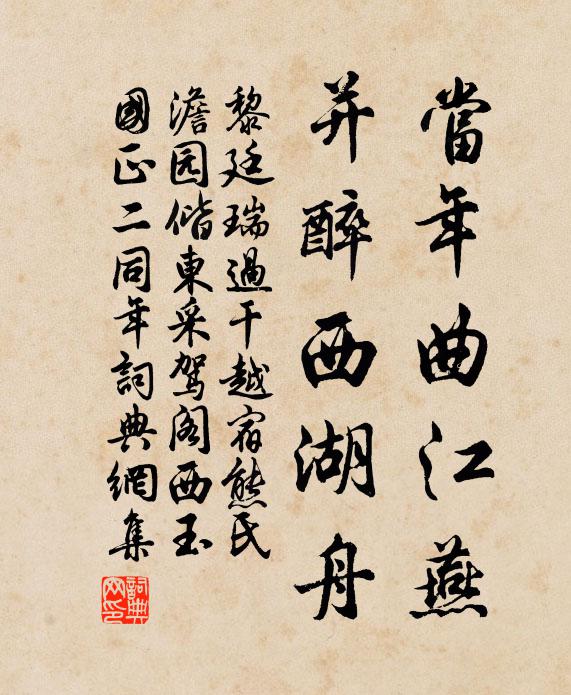 當年曲江燕
并醉西湖舟
黎廷瑞過干越宿熊氏
澹园偕東采驾阁西玉
國正二同年詞典網集
詞典
网印